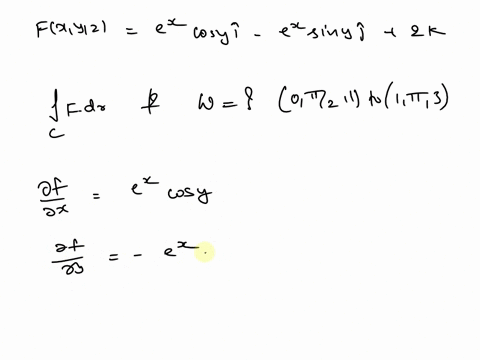 F(x,y,z) = e^x cosy î - e^x siny ĵ + 2k
∫_C F dr & W = ? (0, π/2, 1) to (1, π, 3)
∂f/∂x = e^x cosy
∂f/∂y = - e^x